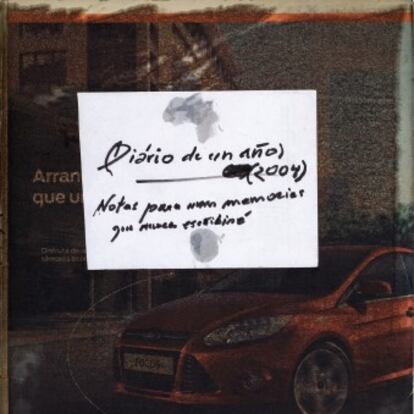 Diário de un año
(2004)
Notas para unas memorias
que nunca escribiré
Arran
que u
Disfruta de
FOCUS